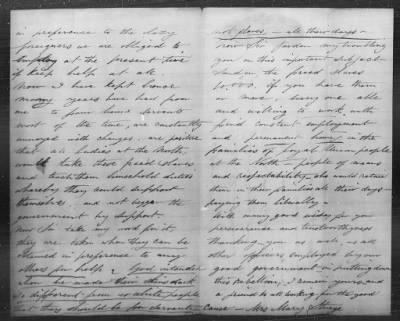 in preference to the lazy
foreigners we are obliged to
employ at the present time
if keep help at all.
Now I have kept house
many years have had from
one to four house servants
most of the time, am constantly
annoyed with changes, am positive
that all ladies at the North
would take these freed slaves
and teach them household duties
whereby they could support
themselves, and not beggar the
government by support.
Now Sir take my word for it,
they are taken when they can be
obtained in preference to any
others for help. God intended
when he made their skins dark
& different from us white people
that they should be for servants
not slaves, — all their days —
Now Sir pardon my troubling
you on this important subject
Send on the freed slaves
10,000 if you have them
or more, every one able
and willing to work, will
find constant employment
and permanent home in the
families of loyal Union people
at the North — people of means
and respectability, who would retain
them in their families all their days
paying them liberally.
With many good wishes for your
perseverance and trustworthyness
thanking you as well as all
other officers employed by our
good government in putting down
this Rebellion, I remain yours, and
a friend to all working for the good
cause — Mrs Mary